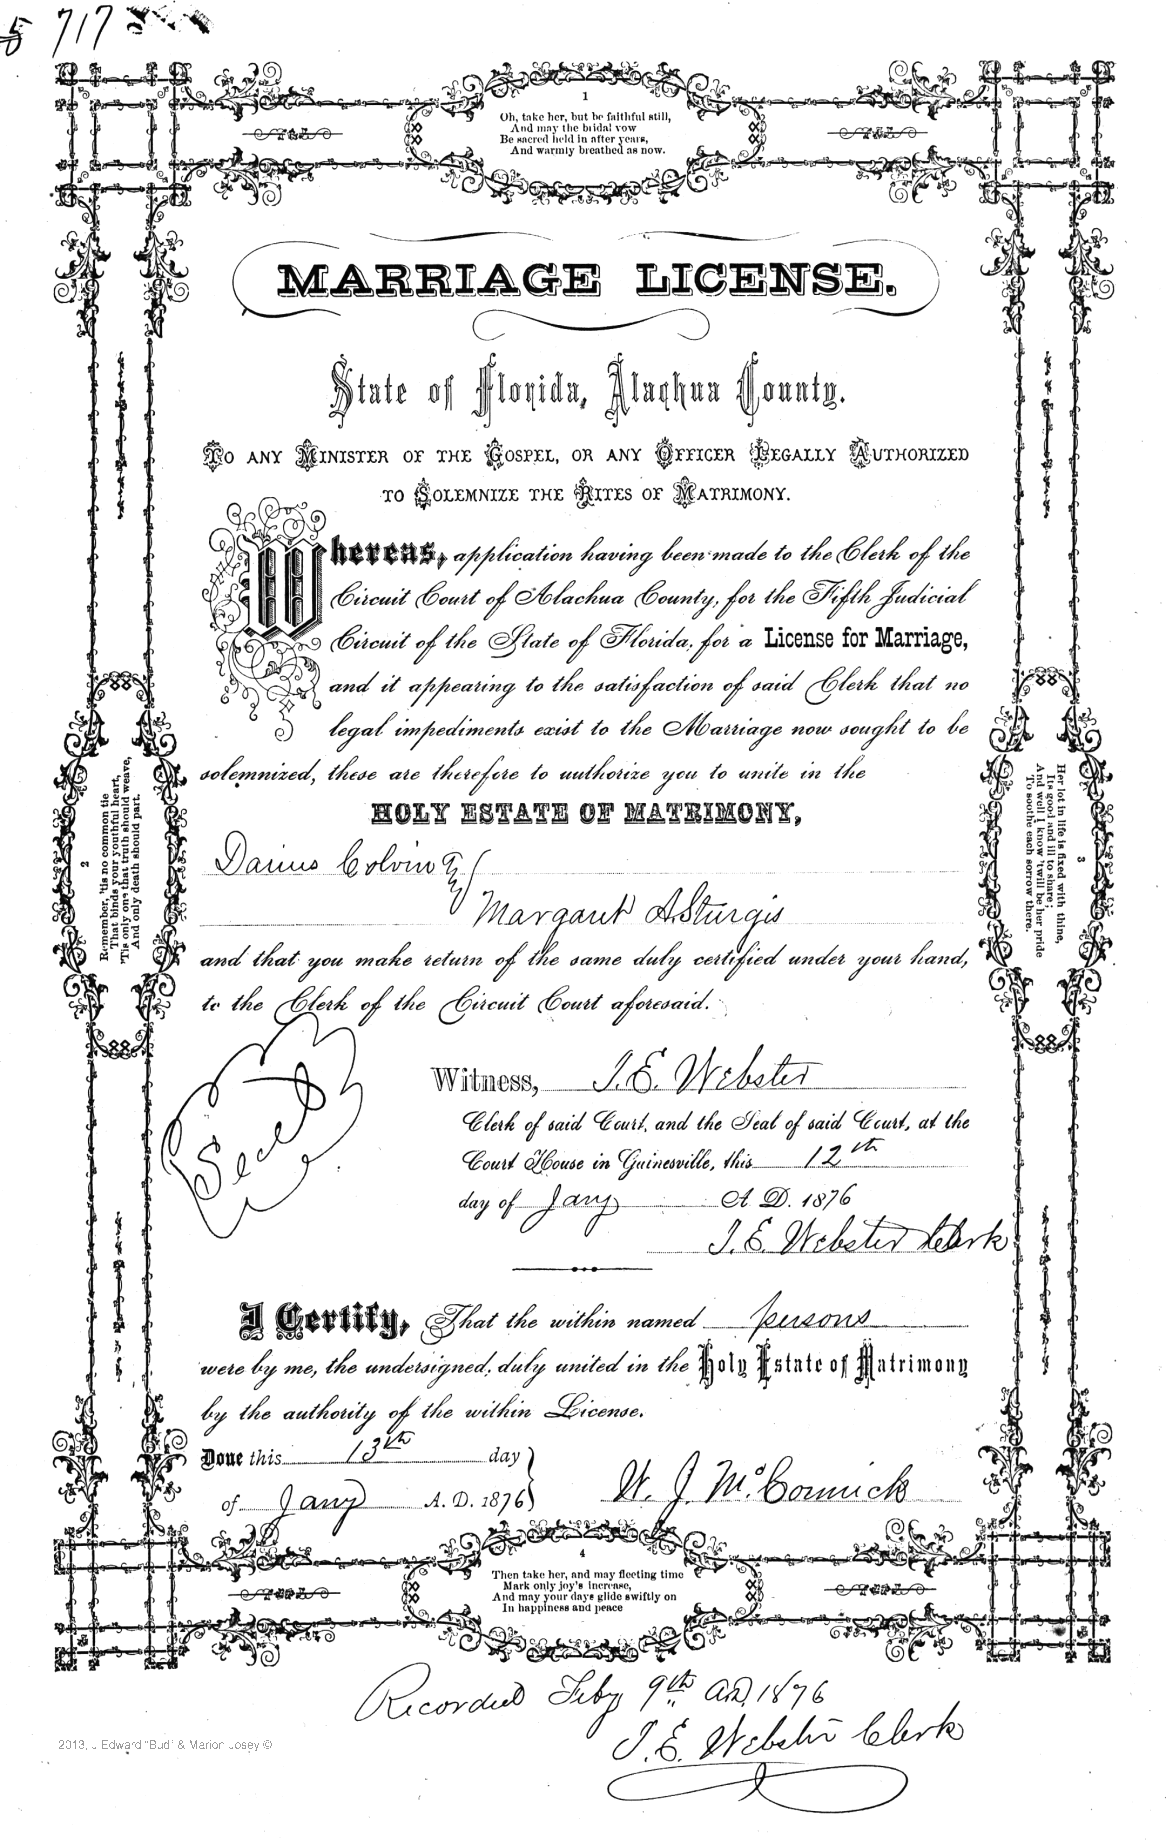 717
1
Oh, take her, but be faithful still,
And may the bridal vow
Be sacred held in after years,
And warmly breathed as now.
MARRIAGE LICENSE.
State of Florida, Alachua County.
TO ANY MINISTER OF THE GOSPEL, OR ANY OFFICER LEGALLY AUTHORIZED
TO SOLEMNIZE THE RITES OF MATRIMONY.
Whereas, application having been made to the Clerk of the
Circuit Court of Alachua County, for the Fifth Judicial
Circuit of the State of Florida, for a License for Marriage,
and it appearing to the satisfaction of said Clerk that no
legal impediments exist to the Marriage now sought to be
solemnized, these are therefore to authorize you to unite in the
HOLY ESTATE OF MATRIMONY,
Darius Colvin
Margaret A Sturgis
and that you make return of the same duly certified under your hand,
to the Clerk of the Circuit Court aforesaid.
2
Remember, 'tis no common tie
That binds your youthful heart,
'Tis only one that truth should weave,
And only death should part.
3
Her lot in life is fixed with thine,
Its good and ill to share;
And well I know 'twill be her pride
To soothe each sorrow there.
Seal
Witness, I. E. Webster
Clerk of said Court, and the Seal of said Court, at the
Court House in Gainesville, this 12th
day of Jany A. D. 1876
I. E. Webster Clerk
I Certify, That the within named persons
were by me, the undersigned, duly united in the Holy Estate of Matrimony
by the authority of the within License.
Done this 13th day
of Jany A. D. 1876
W. J. McCormick
4
Then take her, and may fleeting time
Mark only joy's increase,
And may your days glide swiftly on
In happiness and peace
Recorded Feby 9th A.D. 1876
I. E. Webster Clerk
2013, J Edward "Bud" & Marion Josey ©